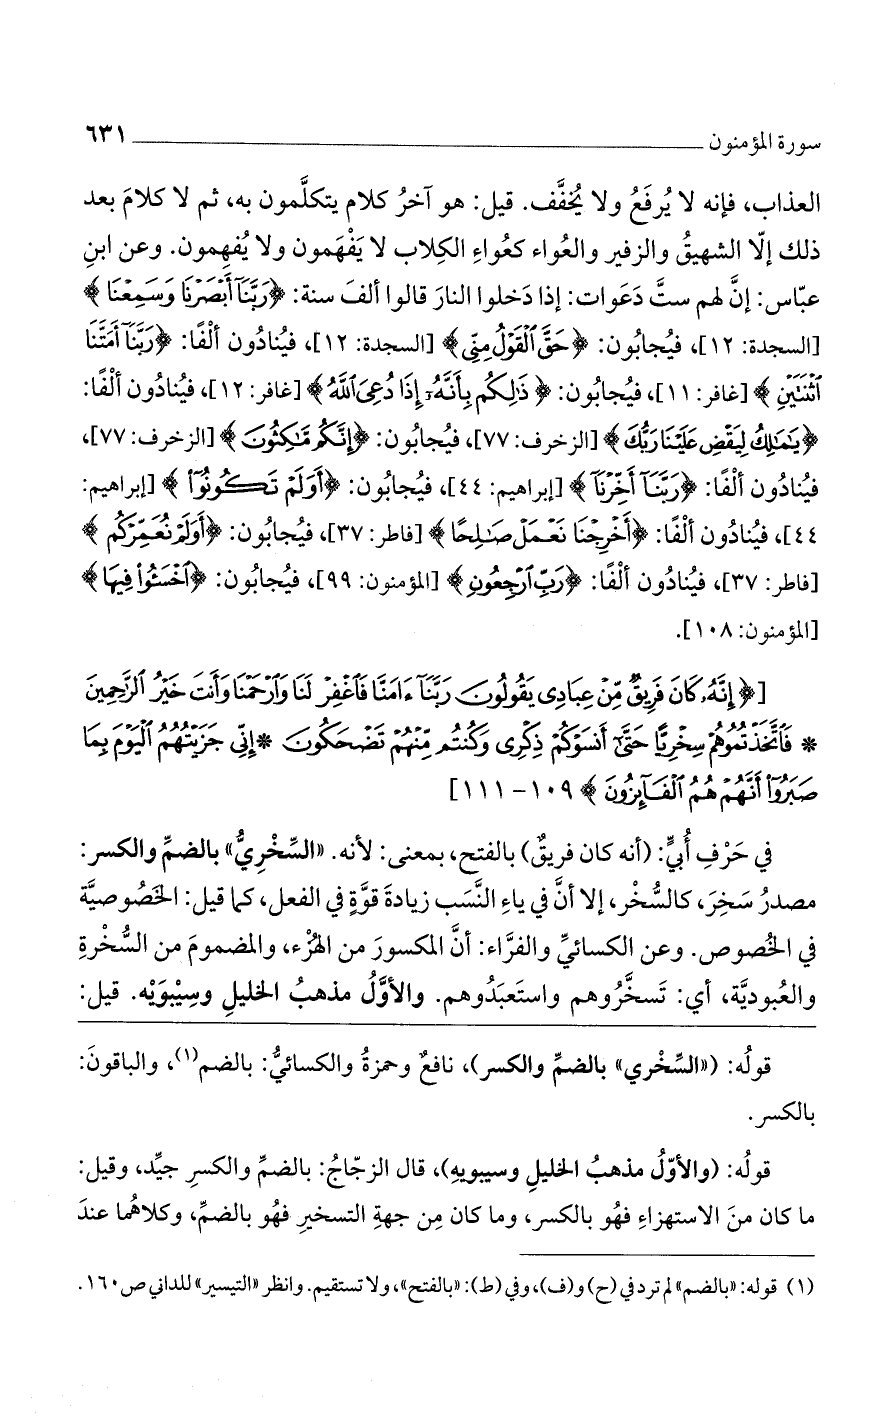 سورة المؤمنون ــــــــ ٦٣١
العذاب، فإنه لا يُرفَعُ ولا يُخفَّف. قيل: هو آخرُ كلام يتكلَّمون به، ثم لا كلامَ بعد
ذلك إلّا الشهيقُ والزفير والعُواء كعُواءِ الكِلاب لا يَفْهَمون ولا يُفهِمون. وعن ابنِ
عبّاس: إنَّ لهم ستَّ دَعَوات: إذا دَخلوا النارَ قالوا ألفَ سنة: ﴿رَبَّنَآ أَبْصَرْنَا وَسَمِعْنَا﴾
[السجدة: ١٢]، فيُجابُون: ﴿حَقَّ ٱلْقَوْلُ مِنِّى﴾ [السجدة: ١٢]، فيُنادُون ألْفًا: ﴿رَبَّنَآ أَمَتَّنَا
ٱثْنَتَيْنِ﴾ [غافر: ١١]، فيُجابُون: ﴿ذَٰلِكُم بِأَنَّهُۥٓ إِذَا دُعِىَ ٱللَّهُ﴾ [غافر: ١٢]، فيُنادُون ألْفًا:
﴿يَٰمَٰلِكُ لِيَقْضِ عَلَيْنَا رَبُّكَ﴾ [الزخرف: ٧٧]، فيُجابُون: ﴿إِنَّكُم مَّٰكِثُونَ﴾ [الزخرف: ٧٧]،
فيُنادُون ألْفًا: ﴿رَبَّنَآ أَخِّرْنَآ﴾ [إبراهيم: ٤٤]، فيُجابُون: ﴿أَوَلَمْ تَكُونُوٓا۟﴾ [إبراهيم:
٤٤]، فيُنادُون ألْفًا: ﴿أَخْرِجْنَا نَعْمَلْ صَٰلِحًا﴾ [فاطر: ٣٧]، فيُجابُون: ﴿أَوَلَمْ نُعَمِّرْكُم﴾
[فاطر: ٣٧]، فيُنادُون ألْفًا: ﴿رَبِّ ٱرْجِعُونِ﴾ [المؤمنون: ٩٩]، فيُجابُون: ﴿ٱخْسَـُٔوا۟ فِيهَا﴾
[المؤمنون: ١٠٨].
[﴿إِنَّهُۥ كَانَ فَرِيقٌ مِّنْ عِبَادِى يَقُولُونَ رَبَّنَآ ءَامَنَّا فَٱغْفِرْ لَنَا وَٱرْحَمْنَا وَأَنتَ خَيْرُ ٱلرَّٰحِمِينَ
* فَٱتَّخَذْتُمُوهُمْ سِخْرِيًّا حَتَّىٰٓ أَنسَوْكُمْ ذِكْرِى وَكُنتُم مِّنْهُمْ تَضْحَكُونَ * إِنِّى جَزَيْتُهُمُ ٱلْيَوْمَ بِمَا
صَبَرُوٓا۟ أَنَّهُمْ هُمُ ٱلْفَآئِزُونَ﴾ ١٠٩-١١١]
في حَرْفِ أُبيٍّ: (أنه كان فريقٌ) بالفتح، بمعنى: لأنه. «السِّخْرِيُّ» بالضمِّ والكسر:
مصدرُ سَخِرَ، كالسُّخْر، إلا أنَّ في ياءِ النَّسَب زيادةَ قوَّةٍ في الفعل، كما قيل: الخَصُوصيَّة
في الخُصوص. وعن الكسائيِّ والفرَّاء: أنَّ المكسورَ من الهُزْء، والمضمومَ من السُّخْرةِ
والعُبوديَّة، أي: تَسخَّرُوهم واستَعبَدُوهم. والأوَّلُ مذهبُ الخليلِ وسِيْبَوَيْه. قيل:
قولُه: («السِّخْري» بالضمِّ والكسر)، نافعٌ وحمزةُ والكسائيُّ: بالضم(١)، والباقونَ:
بالكسر.
قولُه: (والأوّلُ مذهبُ الخليلِ وسيبويهِ)، قال الزجّاجُ: بالضمِّ والكسرِ جيِّد، وقيل:
ما كان منَ الاستهزاءِ فهُو بالكسر، وما كان مِن جهةِ التسخيرِ فهُو بالضمِّ، وكلاهُما عندَ
(١) قوله: «بالضم» لم ترد في (ح) و(ف)، وفي (ط): «بالفتح»، ولا تستقيم. وانظر «التيسير» للداني ص١٦٠.